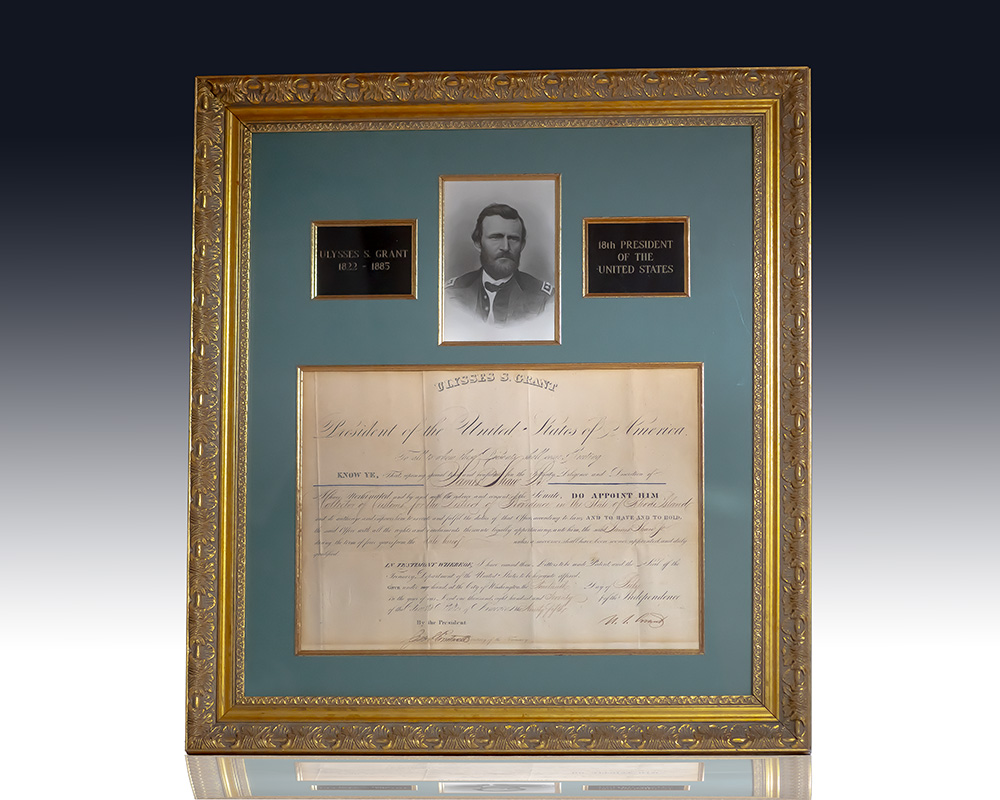 ULYSSES S. GRANT
1822 - 1885
18th PRESIDENT
OF THE
UNITED STATES
ULYSSES S. GRANT
President of the United States of America,
To all to whom these Presents shall come, Greeting
KNOW YE, That reposing special trust and confidence in the Integrity, Diligence and Discretion of
James Shaw Jr
I have nominated, and by and with the advice and consent of the Senate, DO APPOINT HIM
Collector of Customs for the District of Providence in the State of Rhode Island
and do authorize and empower him to execute and fulfil the duties of that Office according to law; AND TO HAVE AND TO HOLD
the said Office with all the rights and emoluments thereunto legally appertaining unto him, the said James Shaw Jr
during the term of four years from the
qualified.
IN TESTIMONY WHEREOF, I have caused these Letters to be made Patent, and the Seal of the
Treasury Department of the United States to be hereunto affixed.
GIVEN under my hand, at the City of Washington the day of
in the year of our Lord one thousand eight hundred and Seventy of the Independence
of the United States of America the Ninety fifth
By the President U. S. Grant
Secretary of the Treasury